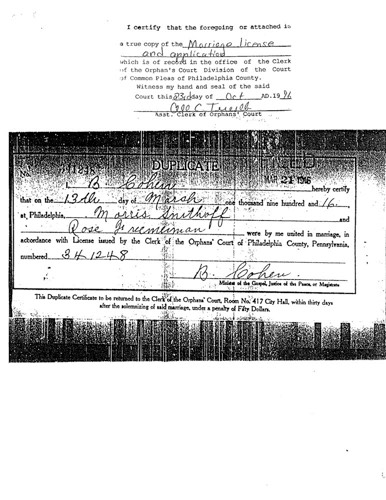 I certify that the foregoing or attached is
a true copy of the Marriage license
and application
which is of record in the office of the Clerk
of the Orphan's Court Division of the Court
of Common Pleas of Philadelphia County.
Witness my hand and seal of the said
Court this 23rd day of Oct AD.1996
Asst. Clerk of Orphans' Court
DUPLICATE
FILED
MAR 21 1916
I, B. Cohen hereby certify
that on the 13th day of March one thousand nine hundred and 16
at Philadelphia, Morris Smithoff and
Rose were by me united in marriage, in
accordance with License issued by the Clerk of the Orphans' Court of Philadelphia County, Pennsylvania,
numbered 341248
B. Cohen
Minister of the Gospel, Justice of the Peace, or Magistrate
This Duplicate Certificate to be returned to the Clerk of the Orphans' Court, Room No. 417 City Hall, within thirty days
after the solemnizing of said marriage, under a penalty of Fifty Dollars.